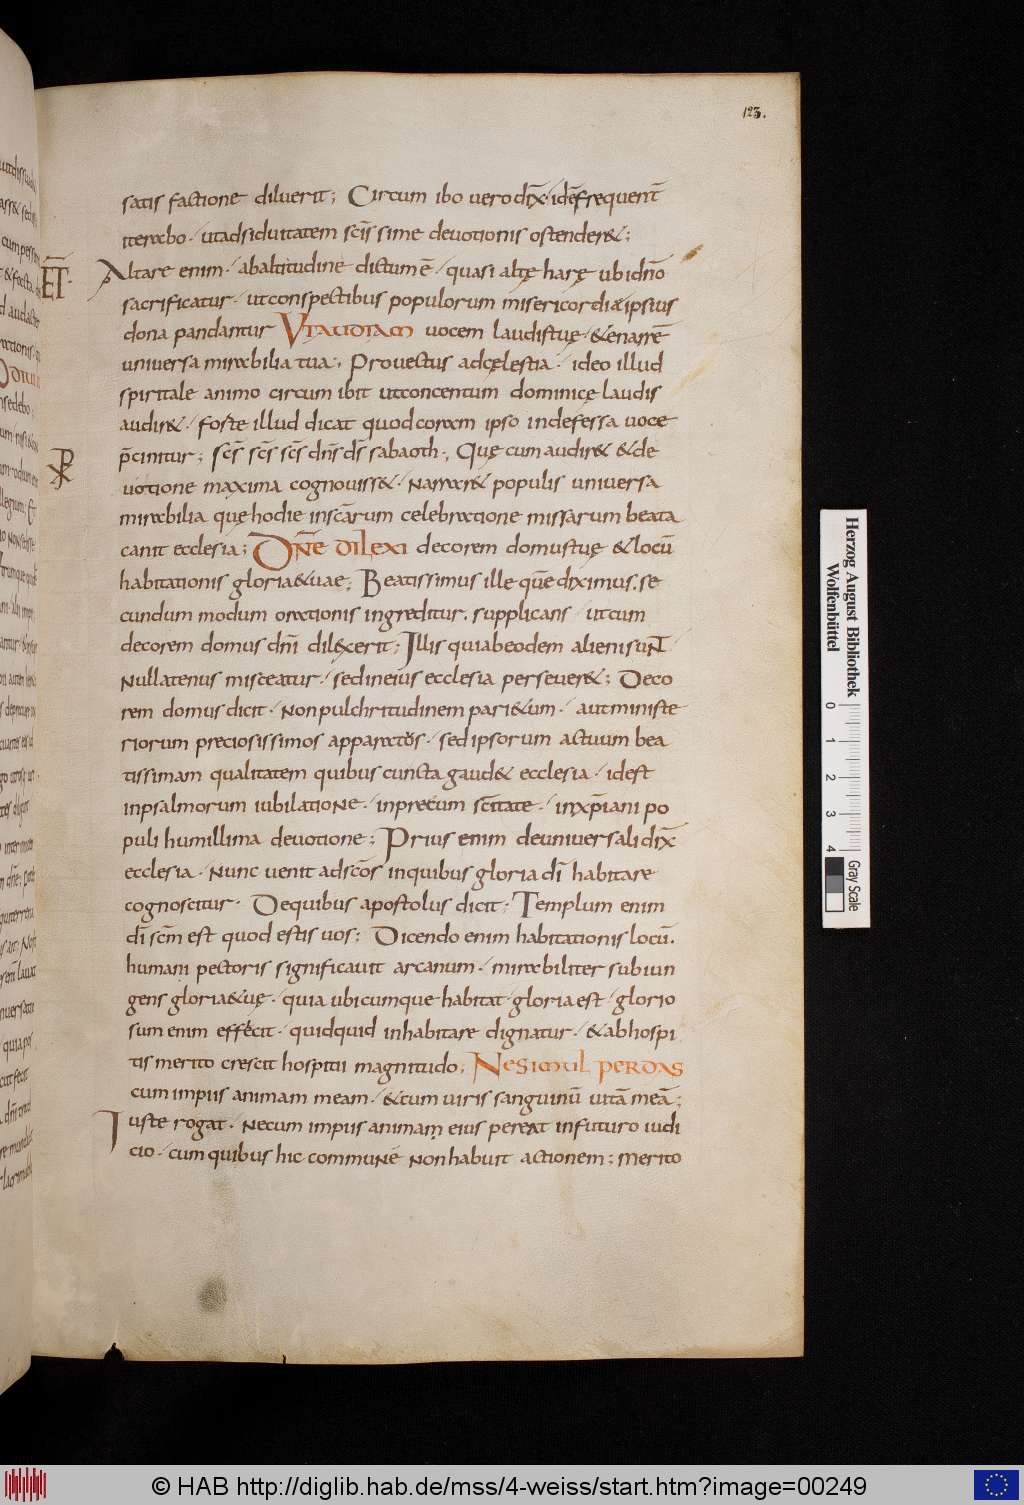 123.
satis factione diluerit; Circum ibo vero dix̄ · idē frequent̄
iterabo · ut adsiduitatem sc̄issime devotionis ostender&;
ĒT·
Altare enim · abaltitudine dictum ē · quasi altę harę ubi dn̄o
sacrificatur · ut conspectibus populorum misericordiae ipsius
dona pandantur UT AUDIAM vocem laudis tuę · & enarrē
universa mirabilia tua; Provectus ad cęlestia · ideo illud
spiritale animo circum ibit ut concentum dominicę laudis
audir& · forte illud dicat quod coram ipso indefessa voce
p̄cinitur; sc̄s sc̄s sc̄s dn̄s ds̄ sabaoth · Quę cum audir& & de
votione maxima cognoviss& · Narrar& populis universa
mirabilia quę hodie in sc̄arum celebratione missarum beata
canit ecclesia; DN̄E DILEXI decorem domus tuę & locū
habitationis gloriae tuae; Beatissimus ille quē diximus. se
cundum modum orationis ingreditur. supplicans · ut cum
decorem domus dn̄i dilexerit; Illis qui ab eodem alieni suNT̄
Nullatenus misceatur · sed in eius ecclesia persever&; Deco
rem domus dicit · Non pulchritudinem pari&um · aut ministe
riorum preciosissimos apparatos · sed ipsorum actuum bea
tissimam qualitatem quibus cuncta gaud& ecclesia · idest
in psalmorum iubilatioNe · in precum sc̄itate · in xp̄iani po
puli humillima devotione; Prius enim de universali dix̄
ecclesia · Nunc venit ad sc̄os in quibus gloria dī habitare
cognoscitur · De quibus apostolus dicit; Templum enim
dī sc̄m est quod estis vos; Dicendo enim habitationis locū.
humani pectoris significavit arcanum · mirabiliter subiun
gens gloriae tuę · quia ubicumque habitat gloria est · glorio
sum enim effecit · quidquid inhabitare dignatur · & ab hospi
tis merito crescit hospitii magnitudo; NE SIMUL PERDAS
cum impiis animam meam · & cum viris sanguinū vitā meā;
Iuste rogat · Ne cum impiis animam eius pereat in futuro iudi
cio · cum quibus hic commuNē Non habuit actionem; Merito
Herzog August Bibliothek
Wolfenbüttel
0 1 2 3 4
Gray Scale
© HAB http://diglib.hab.de/mss/4-weiss/start.htm?image=00249